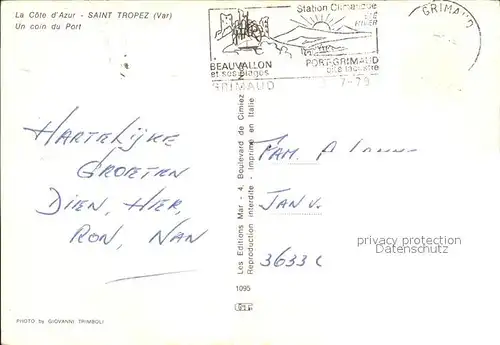 La Côte d'Azur - SAINT TROPEZ (Var)
Un coin du Port
Station Climatique
ÉTÉ
HIVER
BEAUVALLON
et ses plages
PORT-GRIMAUD
cité lacustre
GRIMAUD
7-79
GRIMAUD
HARTELIJKE
GROETEN
DIEN, HIER,
RON, NAN
FAM.
JAN V.
3633 C
privacy protection
Datenschutz
Les Editions Mar - 4, Boulevard de Cimiez
Reproduction interdite - Imprimé en Italie
1095
PHOTO by GIOVANNI TRIMBOLI